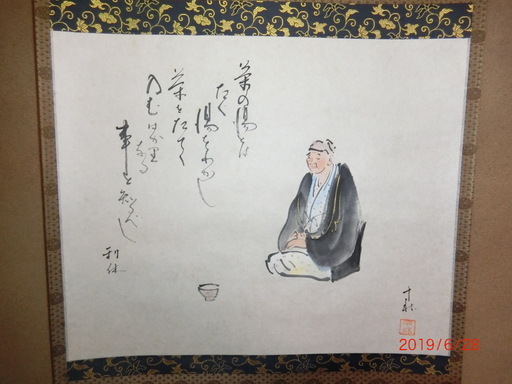 茶の湯とは
たゝ
湯をわかし
茶をたてゝ
のむはかり
なる
事と知へし
利休
2019/6/28